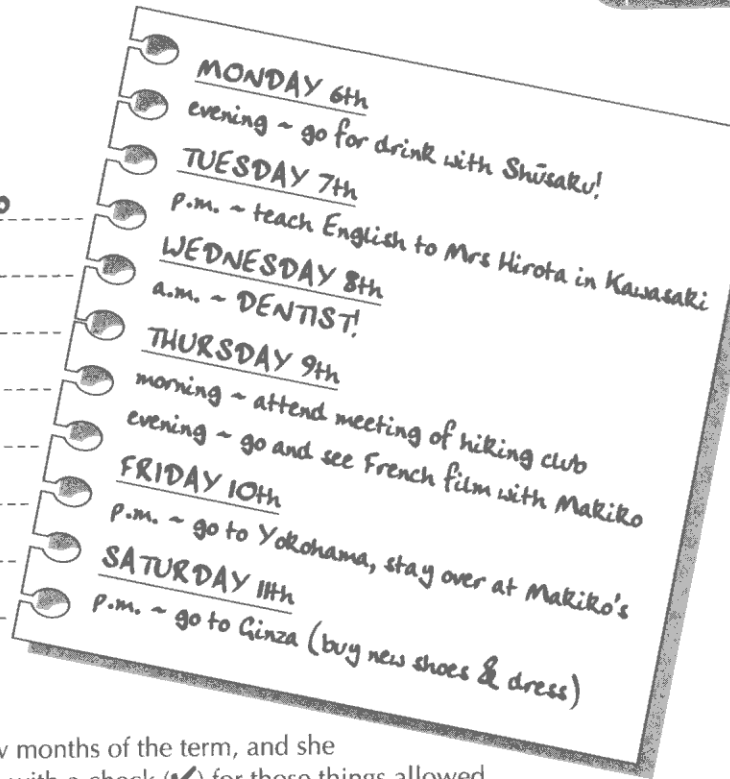 MONDAY 6th
evening ~ go for drink with Shūsaku!
TUESDAY 7th
p.m. ~ teach English to Mrs Hirota in Kawasaki
WEDNESDAY 8th
a.m. ~ DENTIST!
THURSDAY 9th
morning ~ attend meeting of hiking club
evening ~ go and see French film with Makiko
FRIDAY 10th
p.m. ~ go to Yokohama, stay over at Makiko's
SATURDAY 11th
p.m. ~ go to Ginza (buy new shoes & dress)
months of the term, and she
with a check (✔) for those things allowed